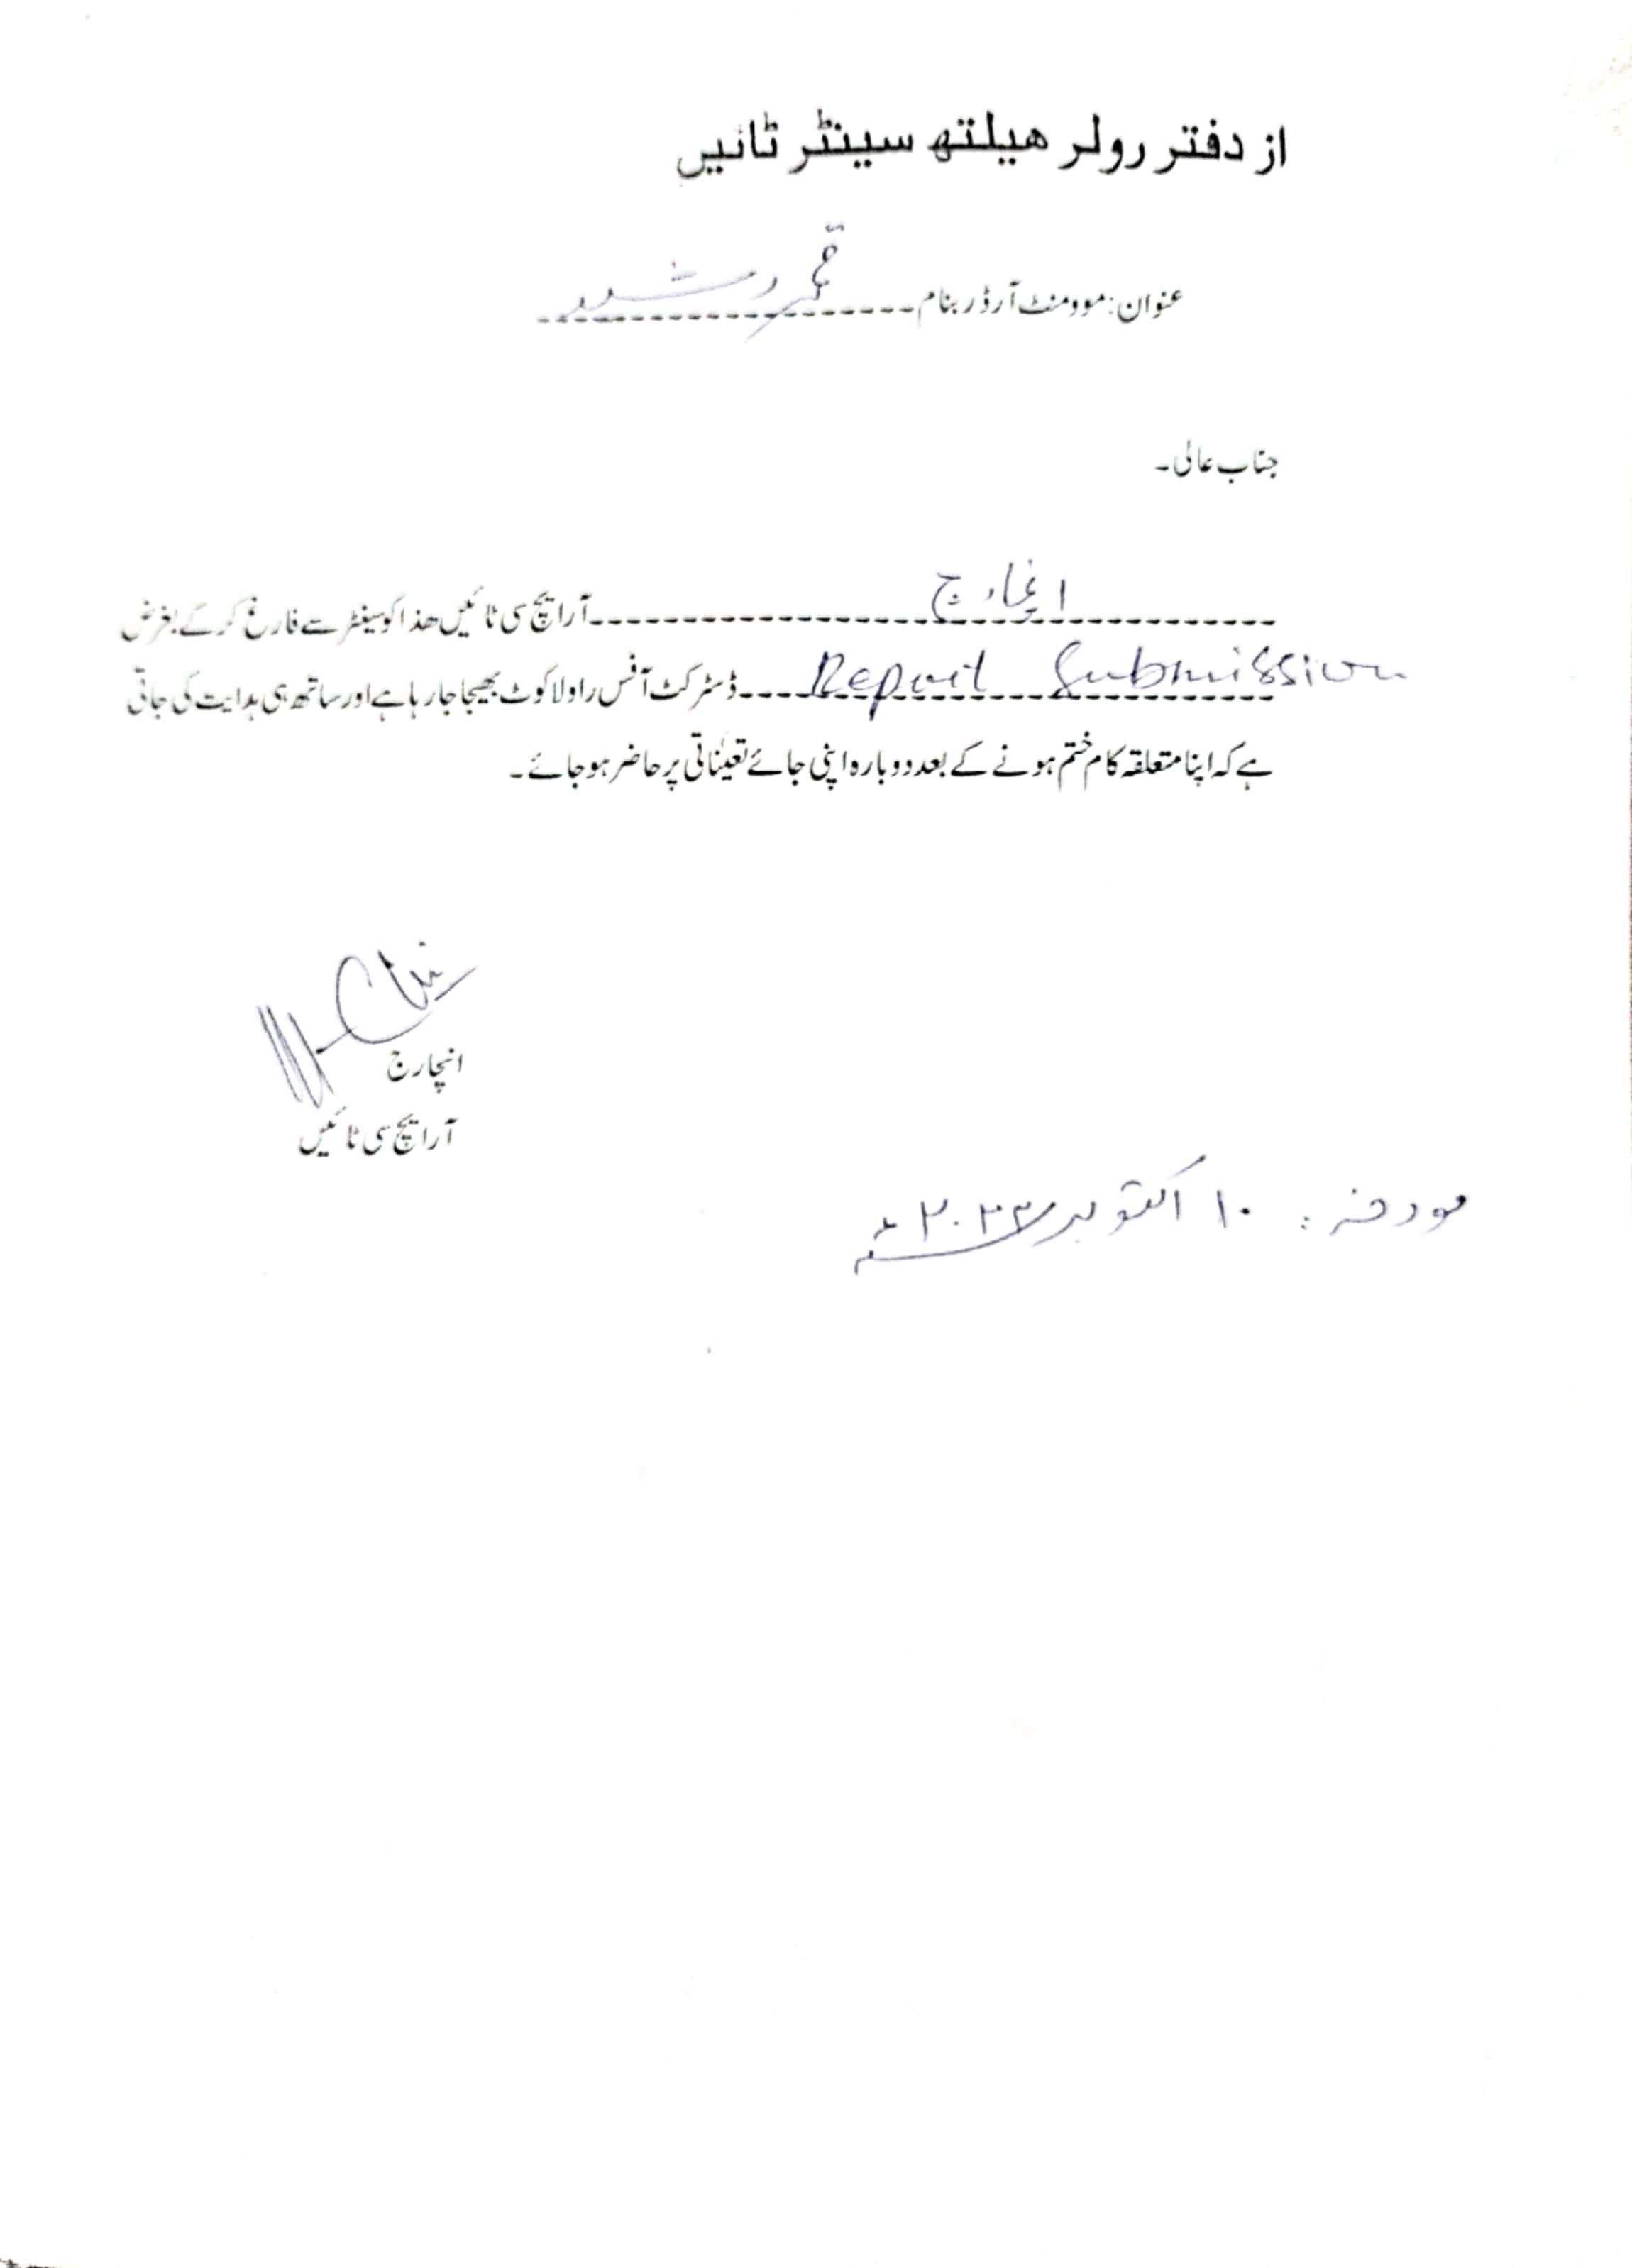 از دفتر رولر ھیلتھ سینٹر ٹائیں
عنوان: موومنٹ آرڈر بنام ---------- قمر رشید
جناب عالی۔
انچارج ---------- آر ایچ سی ٹائیں ھذا کو سینٹر سے فارغ کر کے بغرض
Report Submission ---------- ڈسٹرکٹ آفس راولاکوٹ بھیجا جا رہا ہے اور ساتھ ہی ہدایت کی جاتی
ہے کہ اپنا متعلقہ کام ختم ہونے کے بعد دوبارہ اپنی جائے تعیناتی پر حاضر ہو جائے۔
انچارج
آر ایچ سی ٹائیں
مورخہ: ۱۰ اکتوبر ۲۰۲۳ء